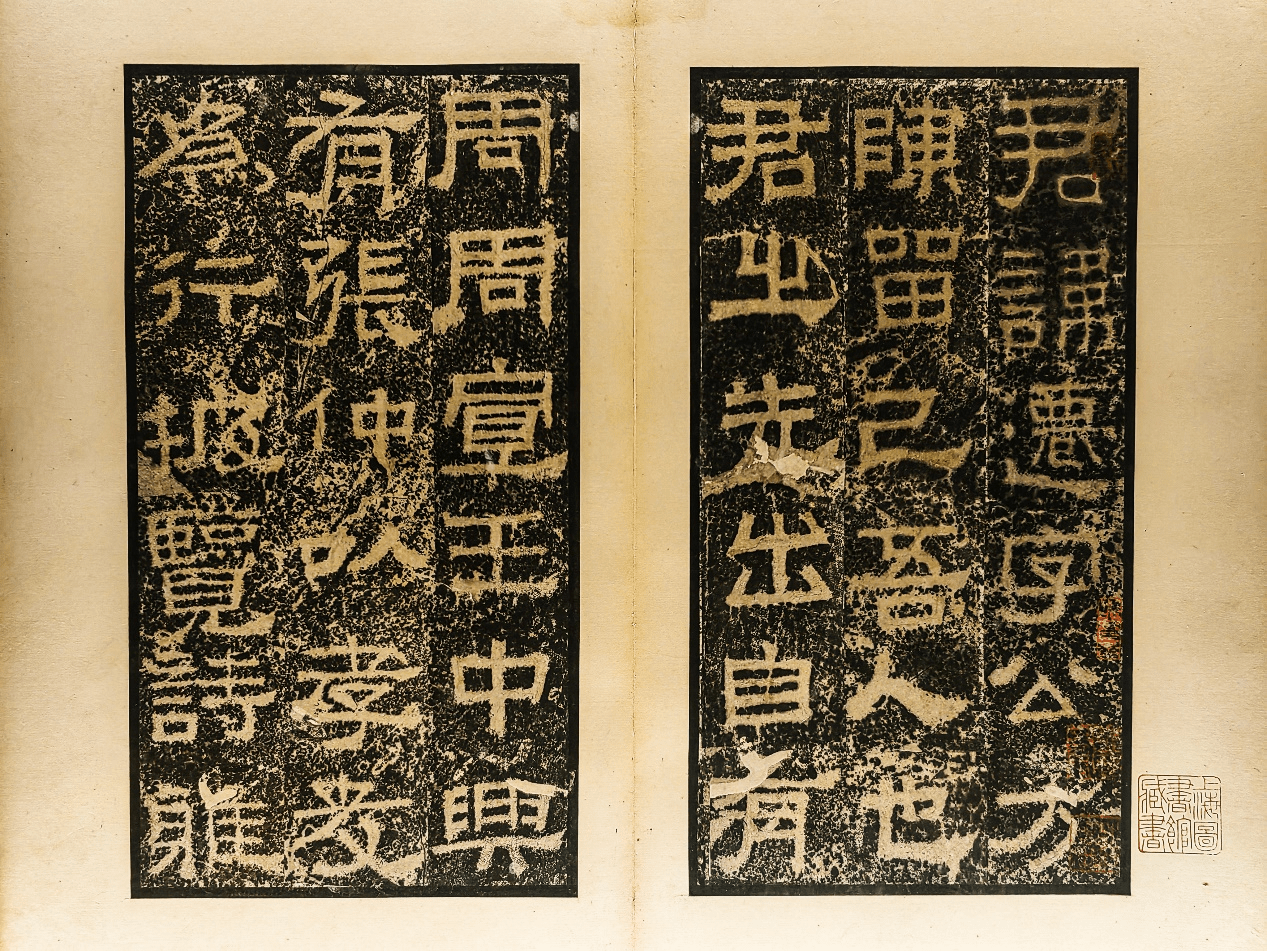 君諱遷字公方
陳留己吾人也
君之先出自有
周周宣王中興
有張仲以孝友
為行披覽詩雅
上海圖書館藏書